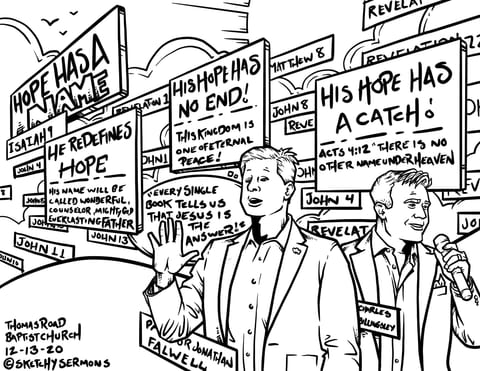 HOPE HAS A
NAME
ISAIAH 9
JOHN 4
HE REDEFINES
HOPE
HIS NAME WILL BE
CALLED WONDERFUL,
COUNSELOR, MIGHTY GOD
EVERLASTING FATHER
JOHN 13
JOHN 11
REVELATION
HIS HOPE HAS
NO END!
THIS KINGDOM IS
ONE OF ETERNAL
PEACE!
"EVERY SINGLE
BOOK TELLS US
THAT JESUS IS
THE
ANSWER!"
MATTHEW 8
JOHN 8
REVE
REVELATION
REVELATION 22
HIS HOPE HAS
A CATCH!
ACTS 4:12 "THERE IS NO
OTHER NAME UNDER HEAVEN
JOHN 4
REVELAT
JO
CHARLES
BILLINGSLEY
PASTOR JONATHAN
FALWELL
THOMAS ROAD
BAPTIST CHURCH
12-13-20
©SKETCHY SERMONS